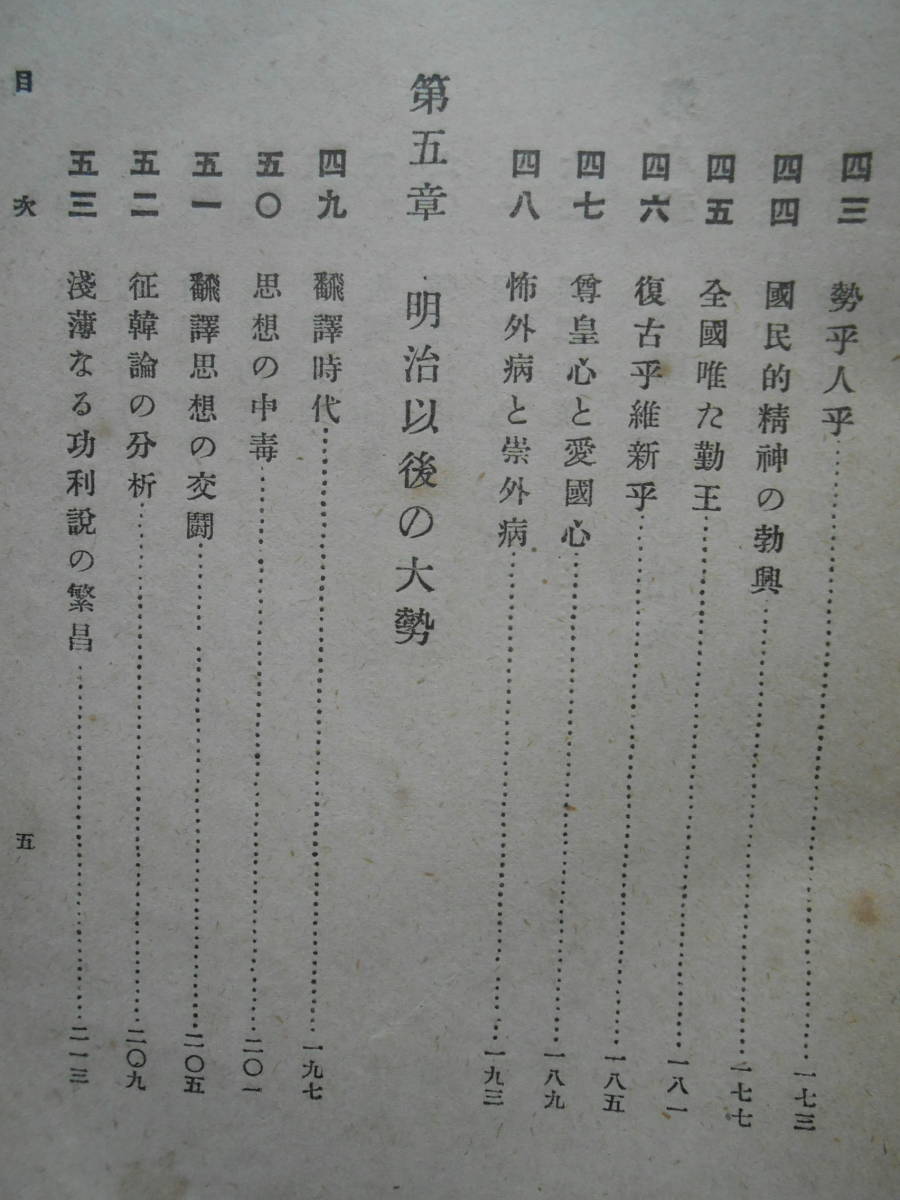 四三 勢乎人乎……一七三
四四 國民的精神の勃興……一七七
四五 全國唯た勤王……一八一
四六 復古乎維新乎……一八五
四七 尊皇心と愛國心……一八九
四八 怖外病と崇外病……一九三
第五章 明治以後の大勢
四九 飜譯時代……一九七
五〇 思想の中毒……二〇一
五一 飜譯思想の交鬪……二〇五
五二 征韓論の分析……二〇九
五三 淺薄なる功利説の繁昌……二一三
目次 五